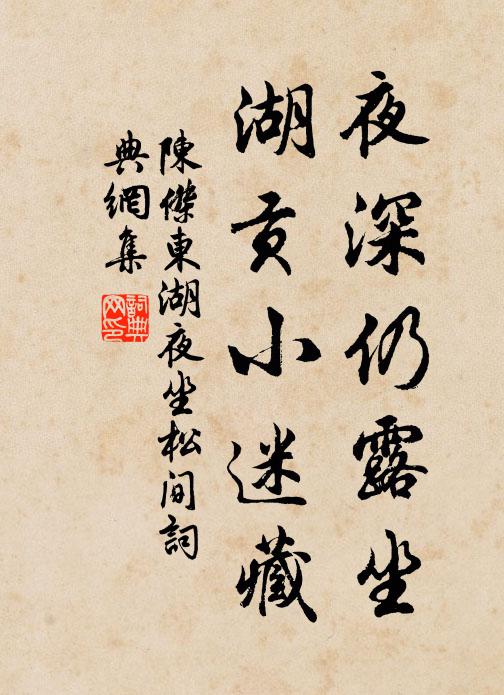 夜深仍露坐
湖贡小迷藏
陳傑東湖夜坐松间詞
典網集
詞典
网印